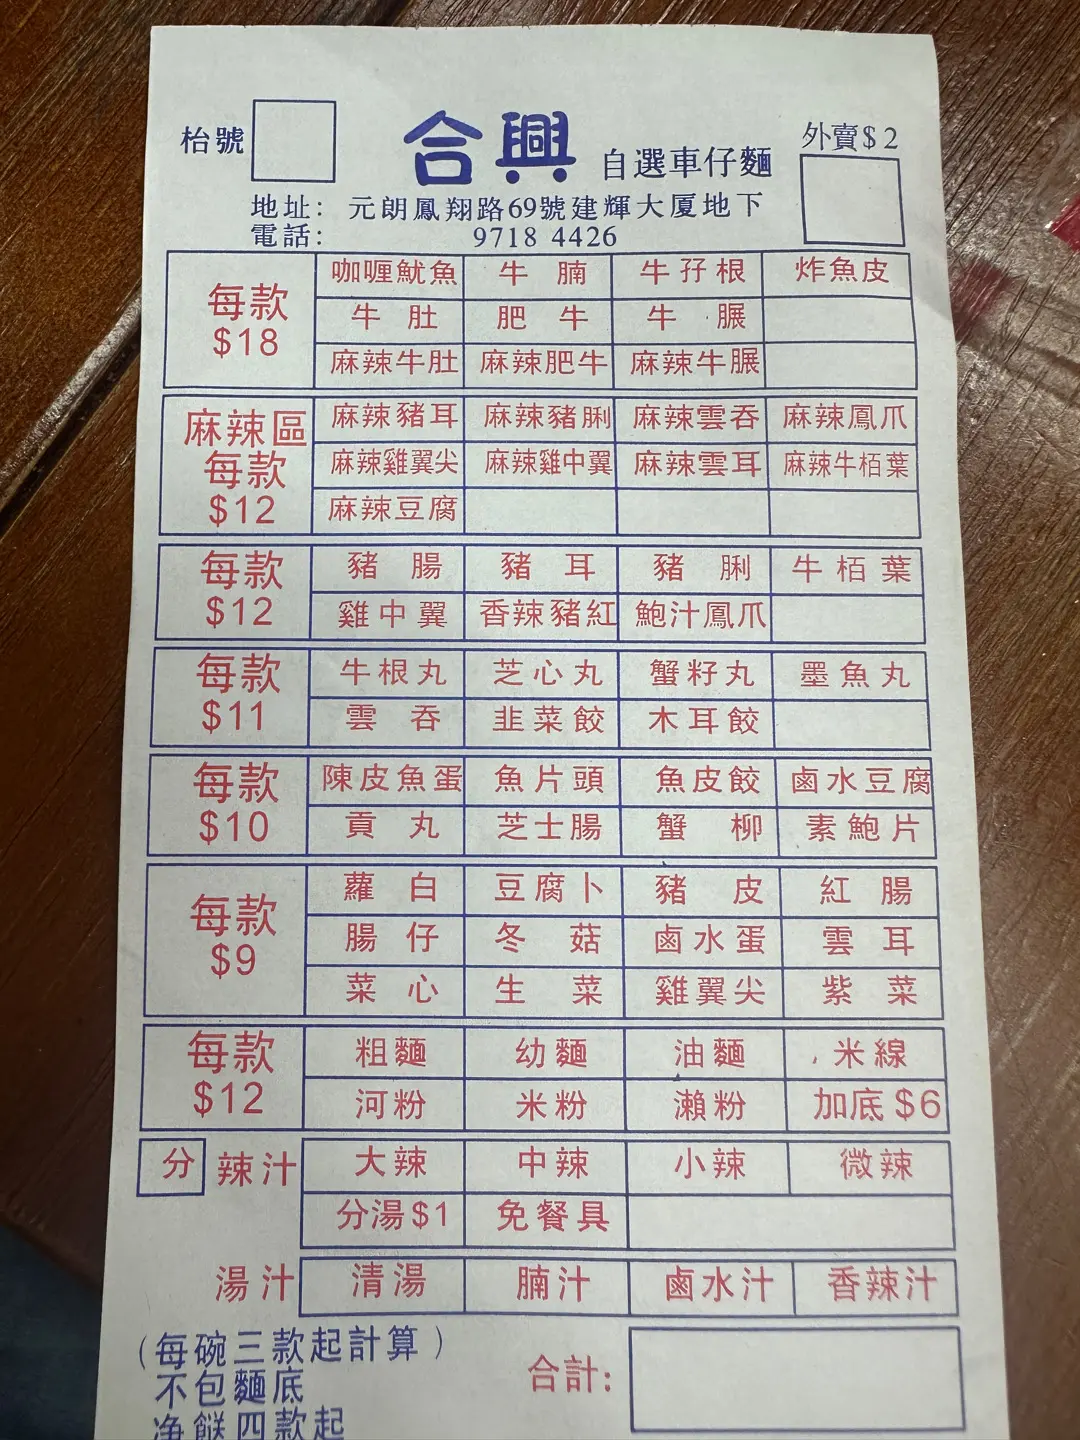 枱號 合興 自選車仔麵 外賣$2
地址：元朗鳳翔路69號建輝大厦地下
電話：9718 4426
每款 $18
咖喱魷魚 牛腩 牛孖根 炸魚皮
牛肚 肥牛 牛𦟌
麻辣牛肚 麻辣肥牛 麻辣牛𦟌
麻辣區 每款 $12
麻辣豬耳 麻辣豬脷 麻辣雲吞 麻辣鳳爪
麻辣雞翼尖 麻辣雞中翼 麻辣雲耳 麻辣牛栢葉
麻辣豆腐
每款 $12
豬腸 豬耳 豬脷 牛栢葉
雞中翼 香辣豬紅 鮑汁鳳爪
每款 $11
牛根丸 芝心丸 蟹籽丸 墨魚丸
雲吞 韭菜餃 木耳餃
每款 $10
陳皮魚蛋 魚片頭 魚皮餃 鹵水豆腐
貢丸 芝士腸 蟹柳 素鮑片
每款 $9
蘿白 豆腐卜 豬皮 紅腸
腸仔 冬菇 鹵水蛋 雲耳
菜心 生菜 雞翼尖 紫菜
每款 $12
粗麵 幼麵 油麵 米線
河粉 米粉 瀨粉 加底$6
分 辣汁 大辣 中辣 小辣 微辣
分湯$1 免餐具
湯汁 清湯 腩汁 鹵水汁 香辣汁
(每碗三款起計算)
不包麵底
净餸四款起
合計: